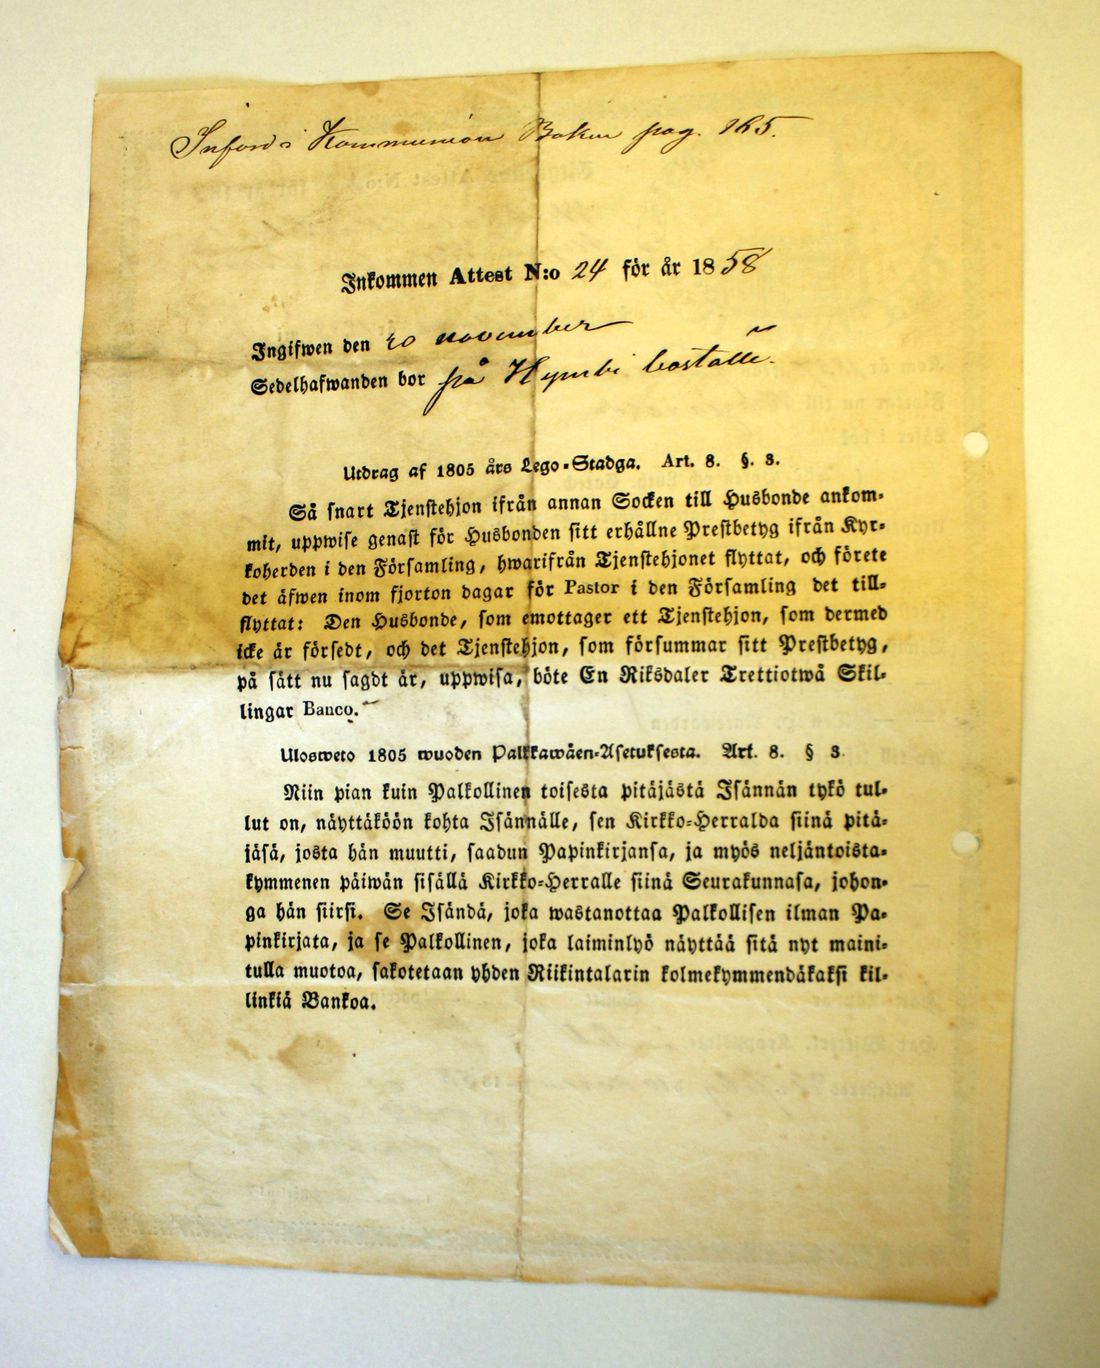 Införd i Kommunion Boken pag. 165.
Inkommen Attest N:o 24 för år 1858
Ingifwen den 20 november
Sedelhafwanden bor på Hymbi boställe.
Utdrag af 1805 års Lego-Stadga. Art. 8. §. 3.
Så snart Tjenstehjon ifrån annan Socken till Husbonde ankom-
mit, uppwise genast för Husbonden sitt erhållne Prestbetyg ifrån Kyr-
koherden i den Församling, hwarifrån Tjenstehjonet flyttat, och förete
det äfwen inom fjorton dagar för Pastor i den Församling det till-
flyttat: Den Husbonde, som emottager ett Tjenstehjon, som dermed
icke är försedt, och det Tjenstehjon, som försummar sitt Prestbetyg,
på sätt nu sagdt är, uppwisa, böte En Riksdaler Trettiotwå Skil-
lingar Banco.
Ulosweto 1805 wuoden Palkkawäen-Asetuksesta. Art. 8. § 3
Niin pian kuin Palkollinen toisesta pitäjästä Isännän tykö tul-
lut on, näyttäköön kohta Isännälle, sen Kirkko-Herralda siinä pitä-
jäsä, josta hän muutti, saadun Papinkirjansa, ja myös neljäntoista-
kymmenen päiwän sisällä Kirkko-Herralle siinä Seurakunnasa, johon-
ga hän siirsi. Se Isändä, joka wastanottaa Palkollisen ilman Pa-
pinkirjata, ja se Palkollinen, joka laiminlyö näyttää sitä nyt maini-
tulla muotoa, sakotetaan yhden Riikintalarin kolmekymmendäkaksi kil-
linkiä Bankoa.